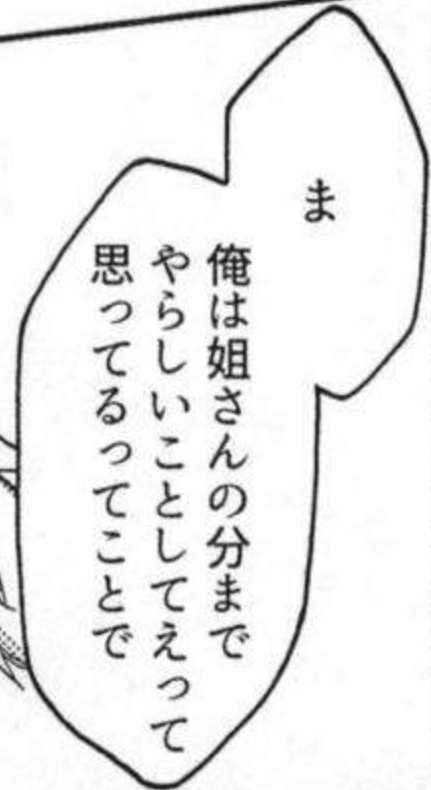 ま
俺は姐さんの分まで
やらしいことしてえって
思ってるってことで